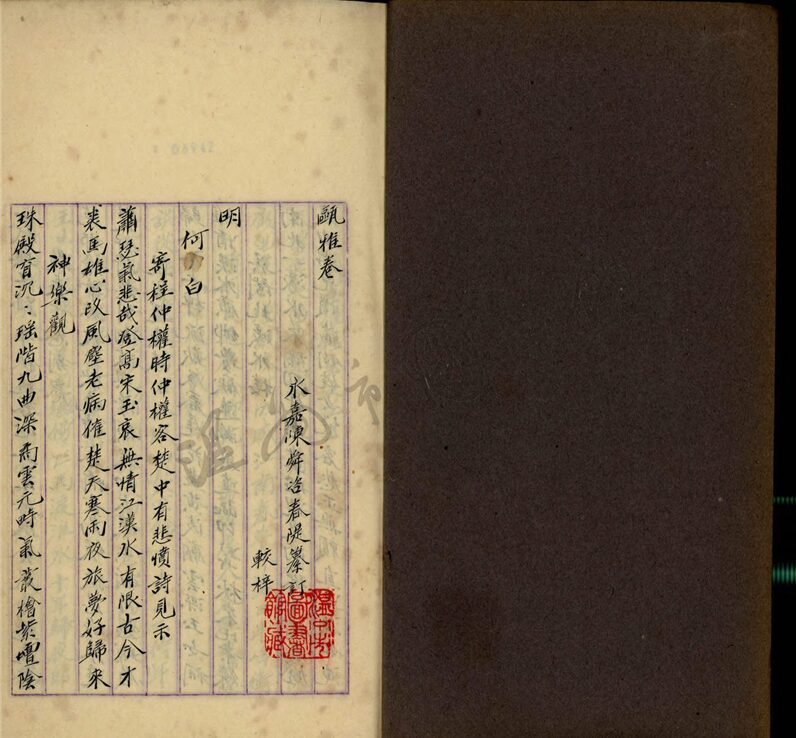 甌雅卷
永嘉陳舜咨春隄纂訂
較梓
明
何白
寄程仲權時仲權客楚中有悲憤詩見示
蕭瑟氣悲哉登高宋玉哀無情江漢水有限古今才
裘馬雄心改風塵老病催楚天寒雨夜旅夢好歸來
神樂觀
珠殿育沉〻瑶階九曲深雨雲元時氣叢檜紫壇陰
圖書館藏